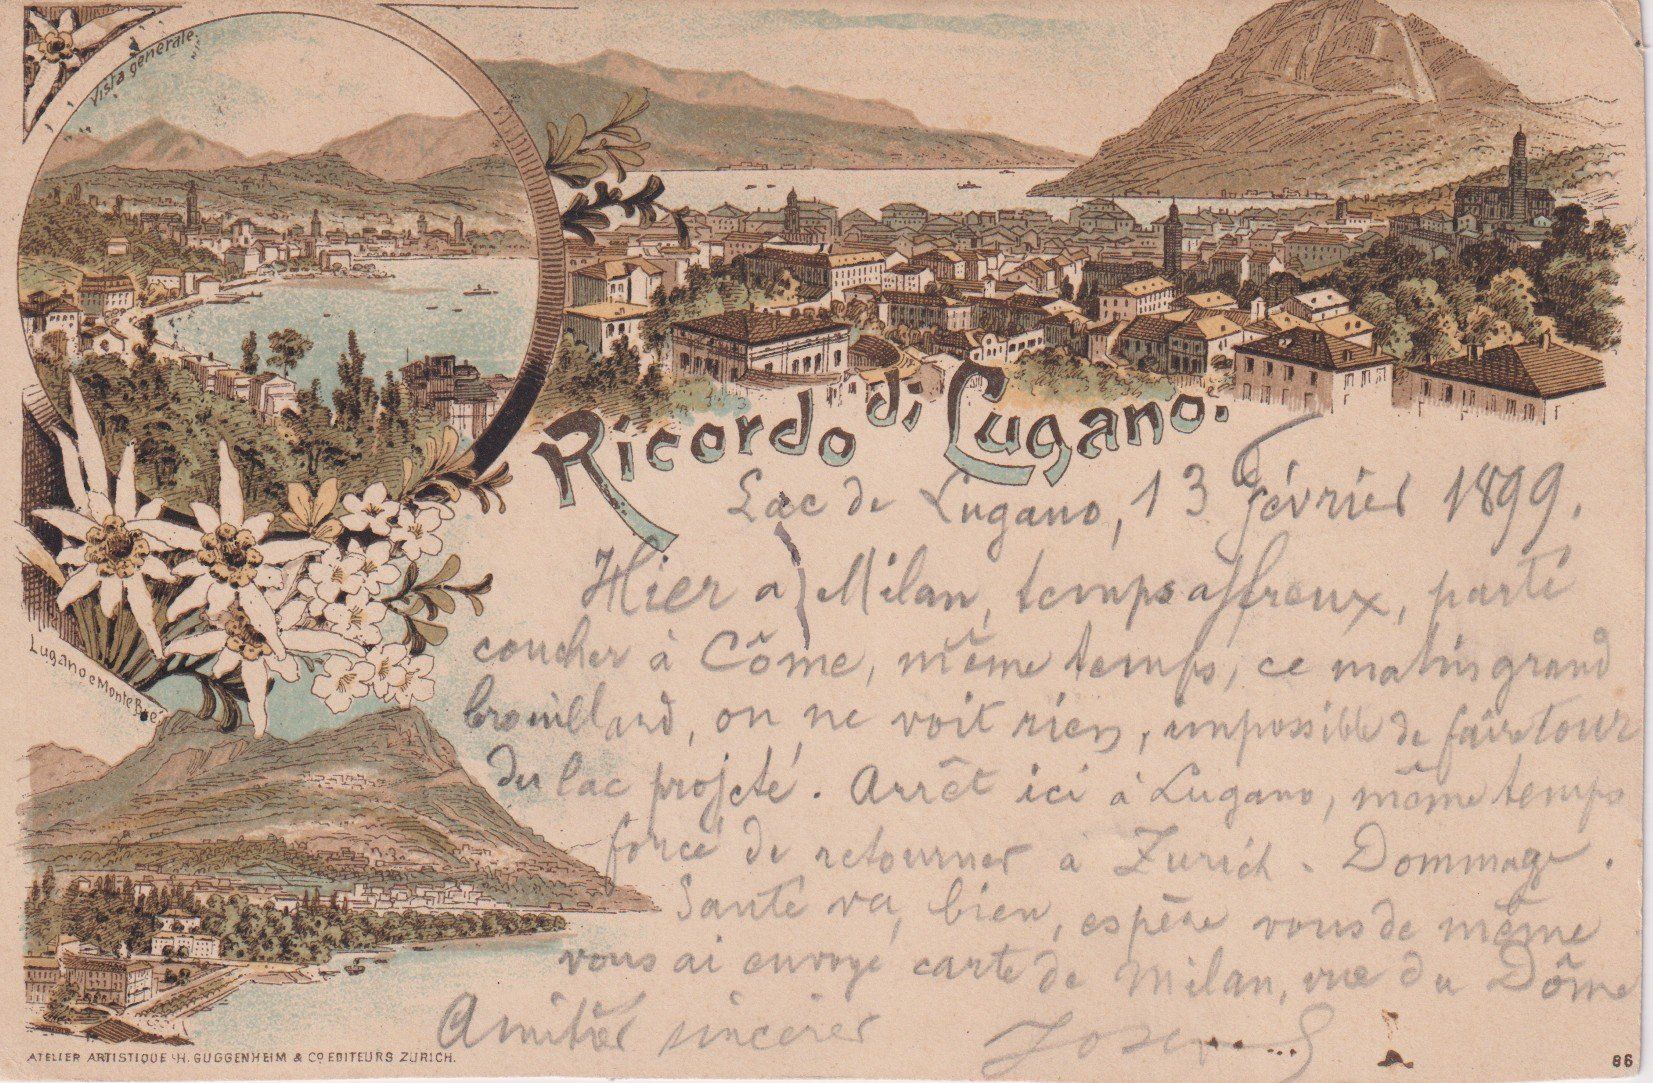 Vista generale.
Ricordo di Lugano.
Lac de Lugano, 13 février 1899.
Hier a Milan, temps affreux, parti
coucher à Côme, même temps, ce matin grand
brouillard, on ne voit rien, impossible de faire tour
du lac projeté. Arrêt ici à Lugano, même temps
forcé de retourner à Zurich. Dommage.
Santé va bien, espère vous de même
vous ai envoyé carte de Milan, vue du Dôme
Amitiés sincères
Lugano e Monte Brè
ATELIER ARTISTIQUE H. GUGGENHEIM & Co EDITEURS ZURICH.
86